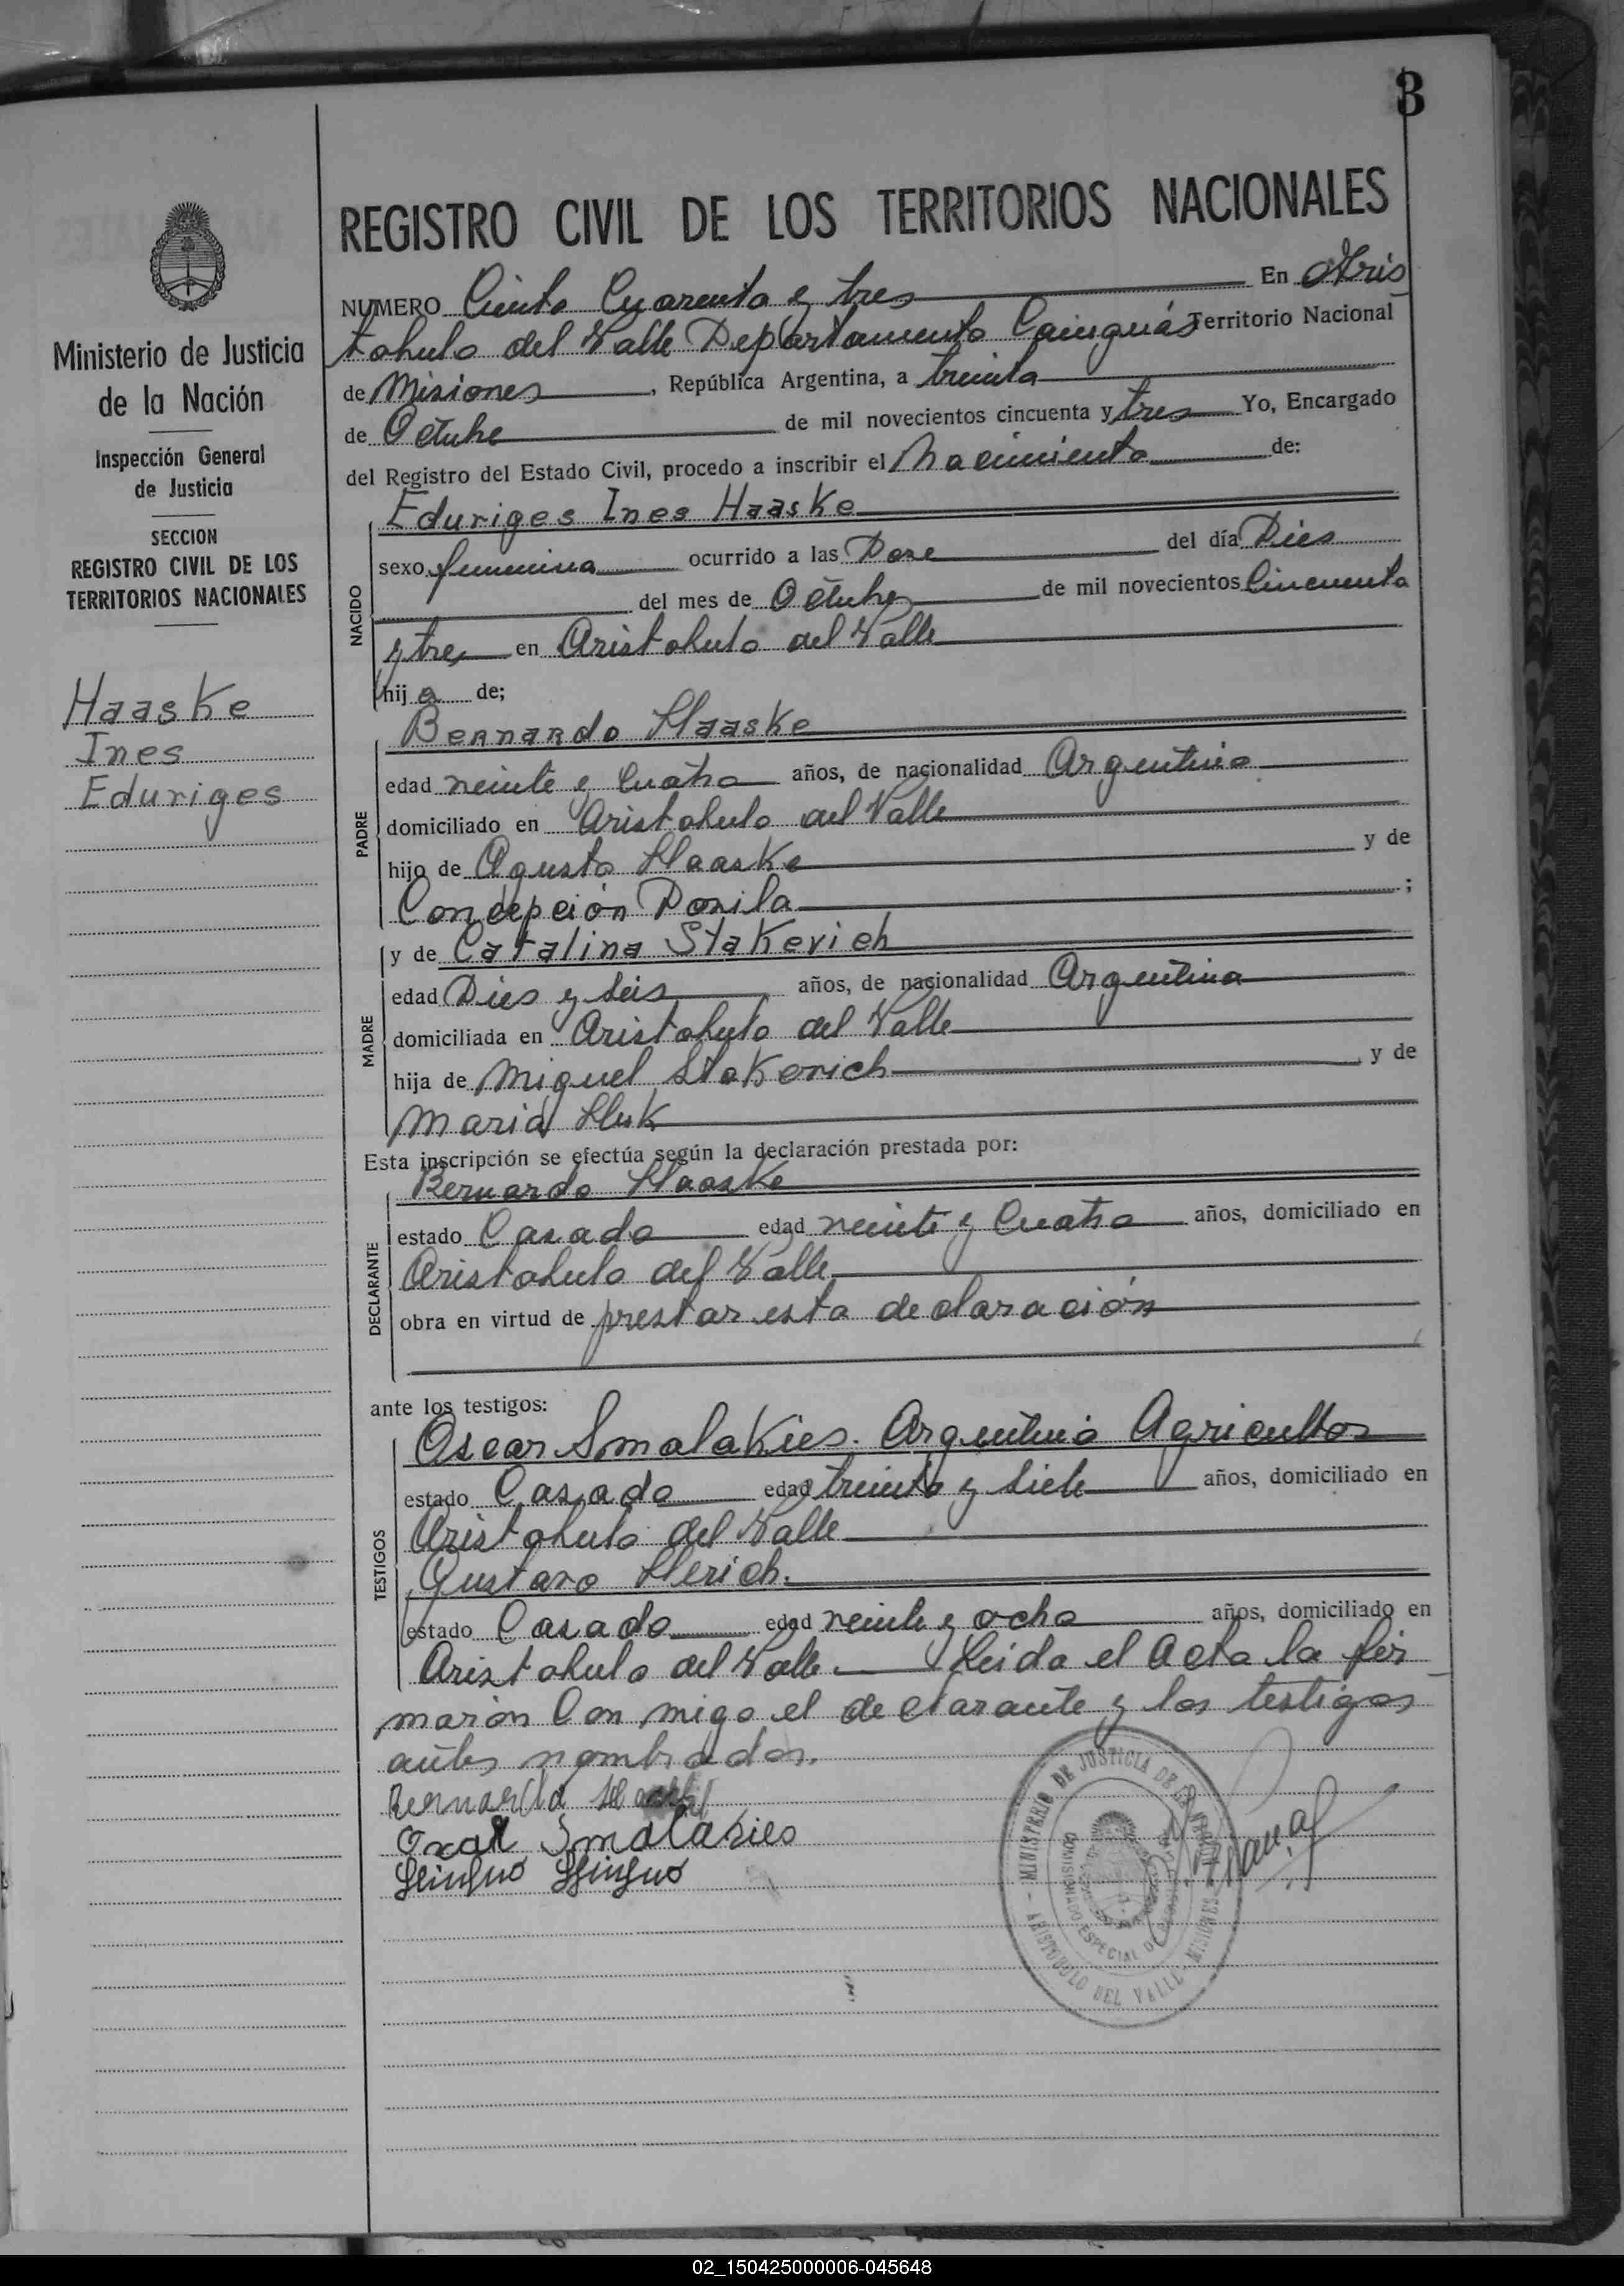 3
REGISTRO CIVIL DE LOS TERRITORIOS NACIONALES
NUMERO Ciento Cuarenta y tres En Aris
tobulo del Valle Departamento Cainguás Territorio Nacional
de Misiones, República Argentina, a treinta
de Octubre de mil novecientos cincuenta y tres Yo, Encargado
del Registro del Estado Civil, procedo a inscribir el Nacimiento de:
Ministerio de Justicia
de la Nación
Inspección General
de Justicia
SECCION
REGISTRO CIVIL DE LOS
TERRITORIOS NACIONALES
Haaske
Ines
Eduriges
NACIDO
Eduriges Ines Haaske
sexo femenina ocurrido a las Doce del día Dies
del mes de Octubre de mil novecientos Cincuenta
y tres en Aristobulo del Valle
hija de;
PADRE
Bernardo Haaske
edad veinte y Cuatro años, de nacionalidad Argentino
domiciliado en Aristobulo del Valle
hijo de Agusto Haaske y de
Concepción ;
MADRE
y de Catalina Stakevich
edad Dies y seis años, de nacionalidad Argentina
domiciliada en Aristobulo del Valle
hija de Miguel Stakovich y de
Maria Huk
Esta inscripción se efectúa según la declaración prestada por:
DECLARANTE
Bernardo Haaske
estado Casado edad veinte y Cuatro años, domiciliado en
Aristobulo del Valle
obra en virtud de prestar esta declaración
ante los testigos:
TESTIGOS
Oscar Smalakies. Argentino Agricultor
estado Casado edad treinta y siete años, domiciliado en
Aristobulo del Valle
Gustavo Herich.
estado Casado edad veinte y ocho años, domiciliado en
Aristobulo del Valle. Leida el Acta la fir
marón Con migo el declarante y los testigos
antes nombrados.
Bernardo
Smalakies
MINISTERIO DE JUSTICIA DE LA NACION
COMISIONADO ESPECIAL
ARISTOBULO DEL VALLE - MISIONES
02_150425000006-045648